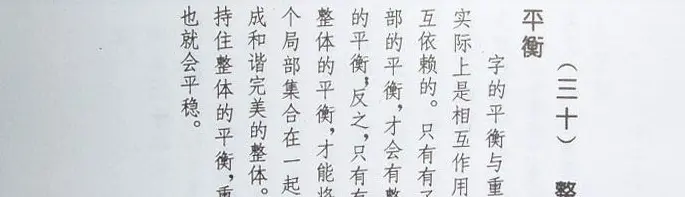 （三十） 整
平衡
字的平衡与重
实际上是相互作用
互依赖的。只有有了
部的平衡，才会有整
的平衡，反之，只有有
整体的平衡，才能将
个局部集合在一起
成和谐完美的整体。
持住整体的平衡，重
也就会平稳。